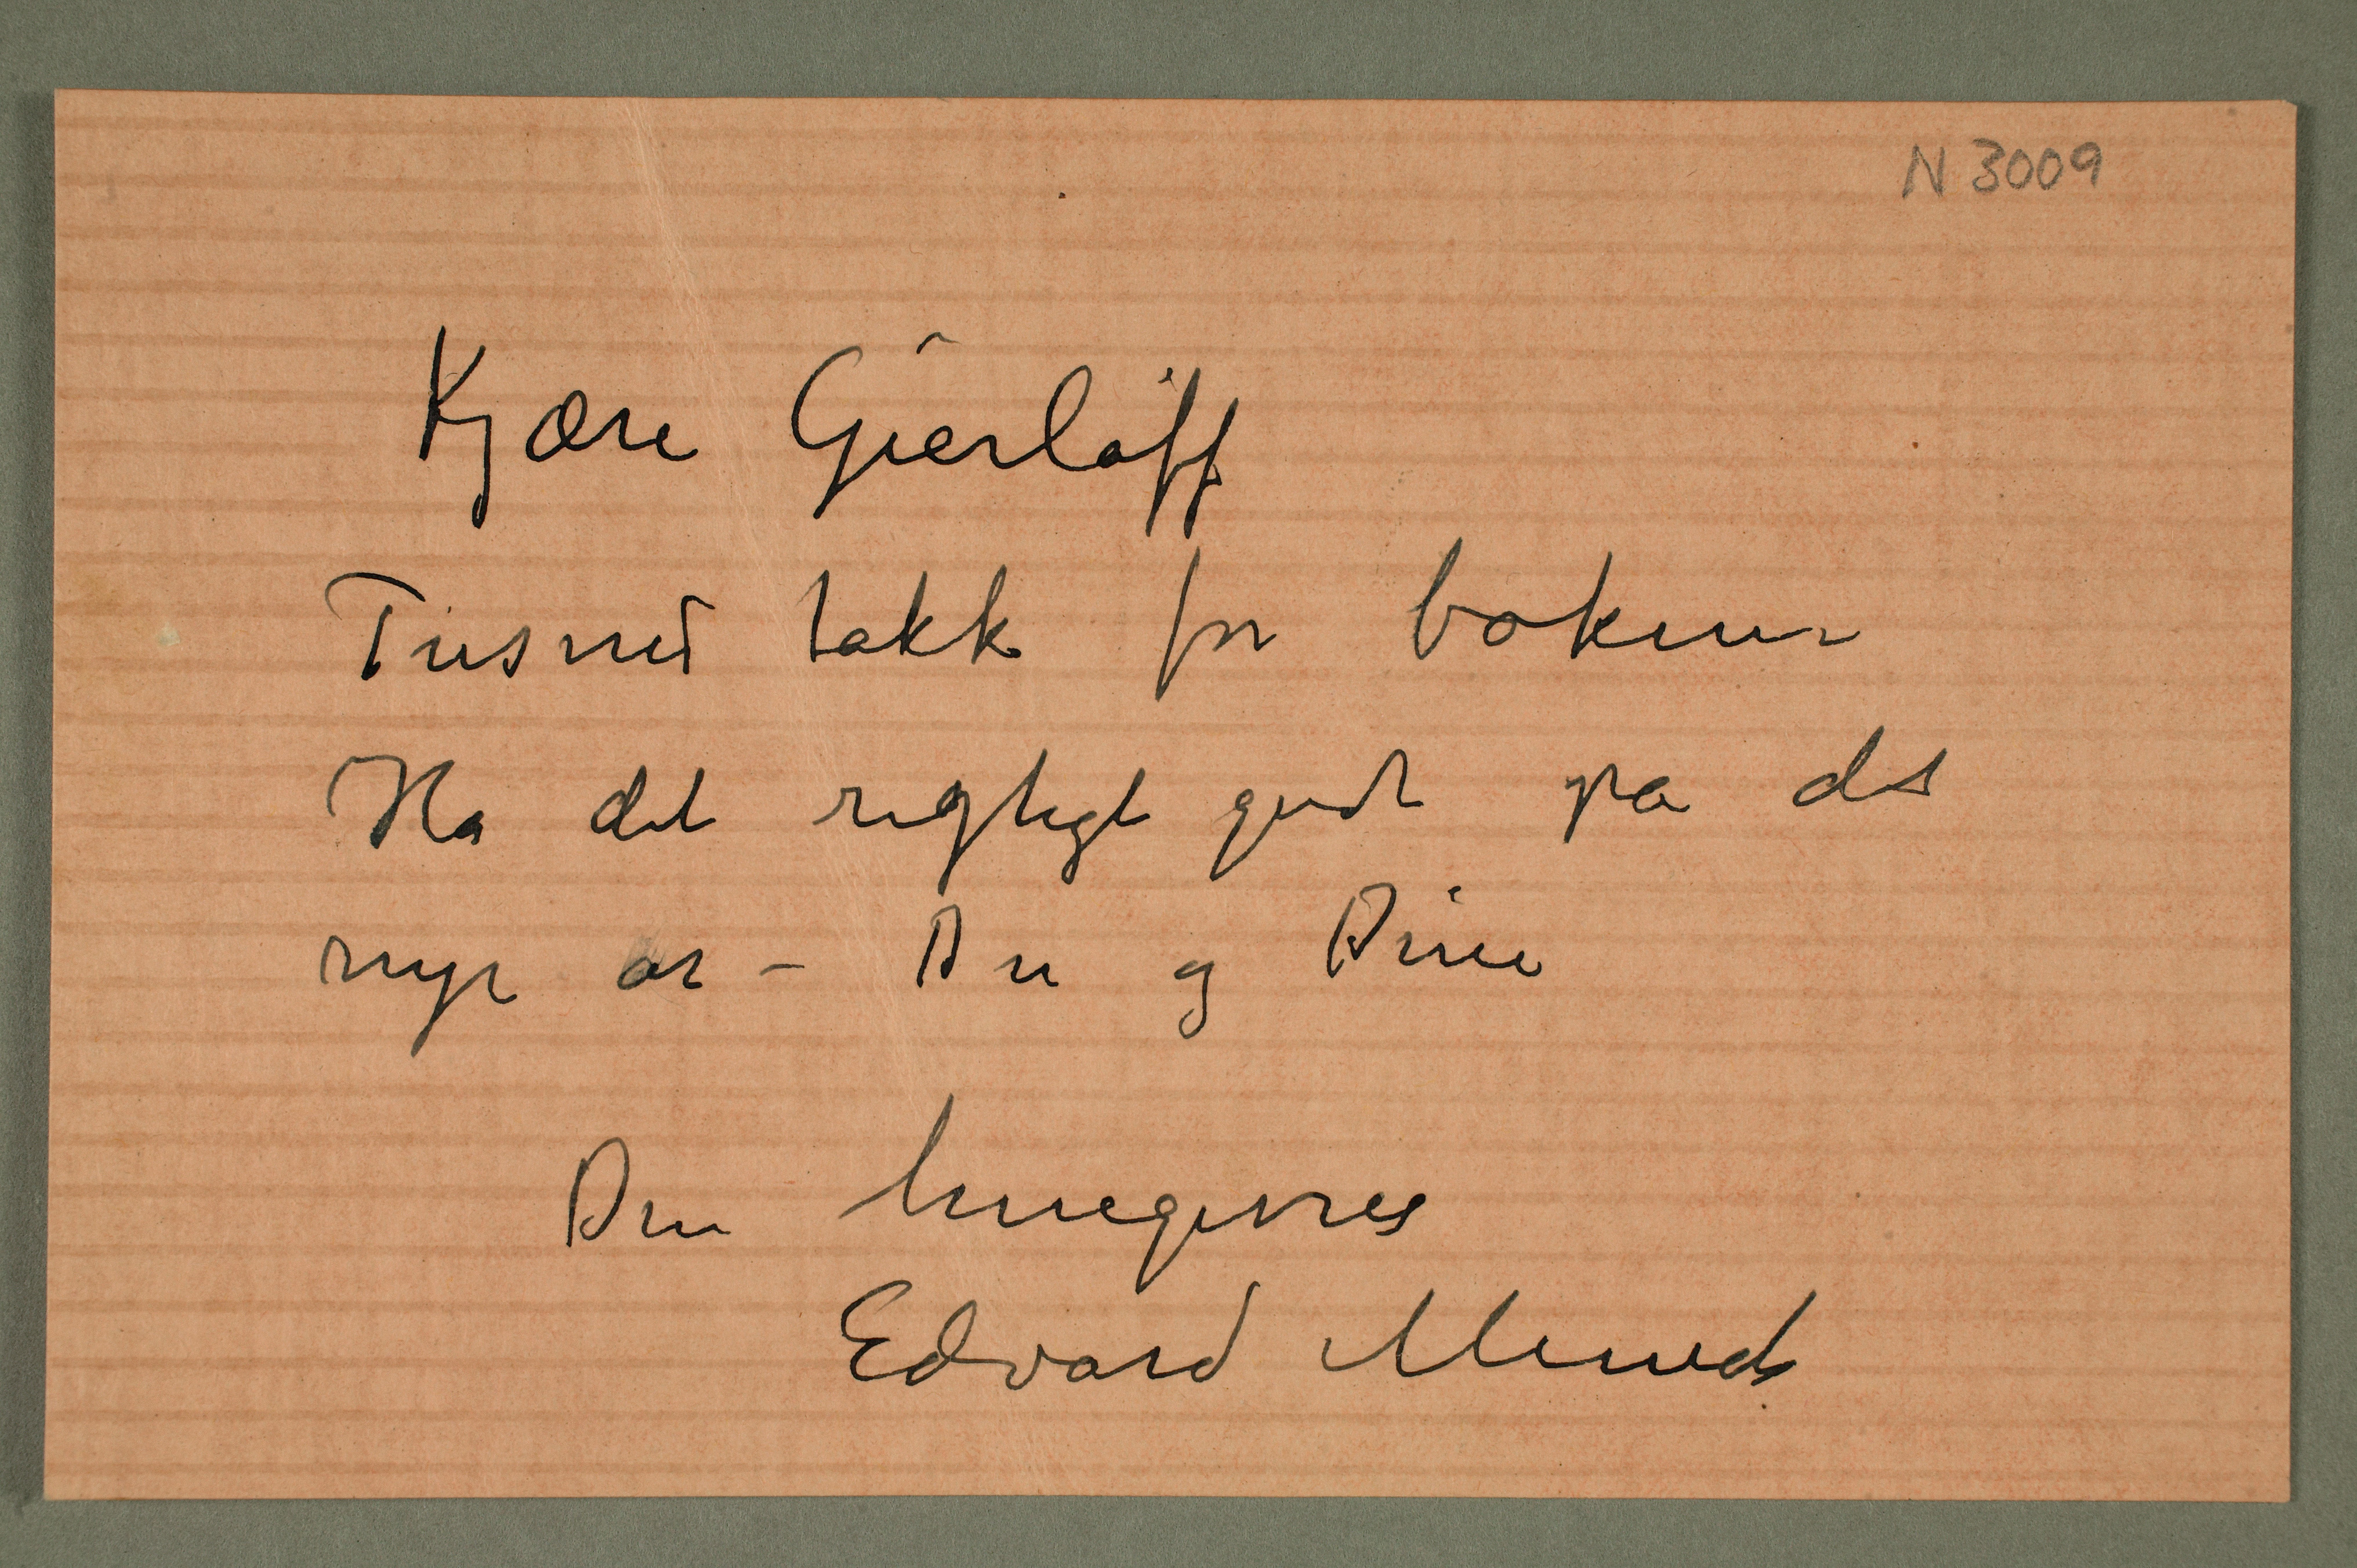 N 3009
Kjære Gierløff
Tusned takk for bøkene
Ha det rigtigt godt på det
nye år – Du og Dine
Din hengivne
Edvard Munch